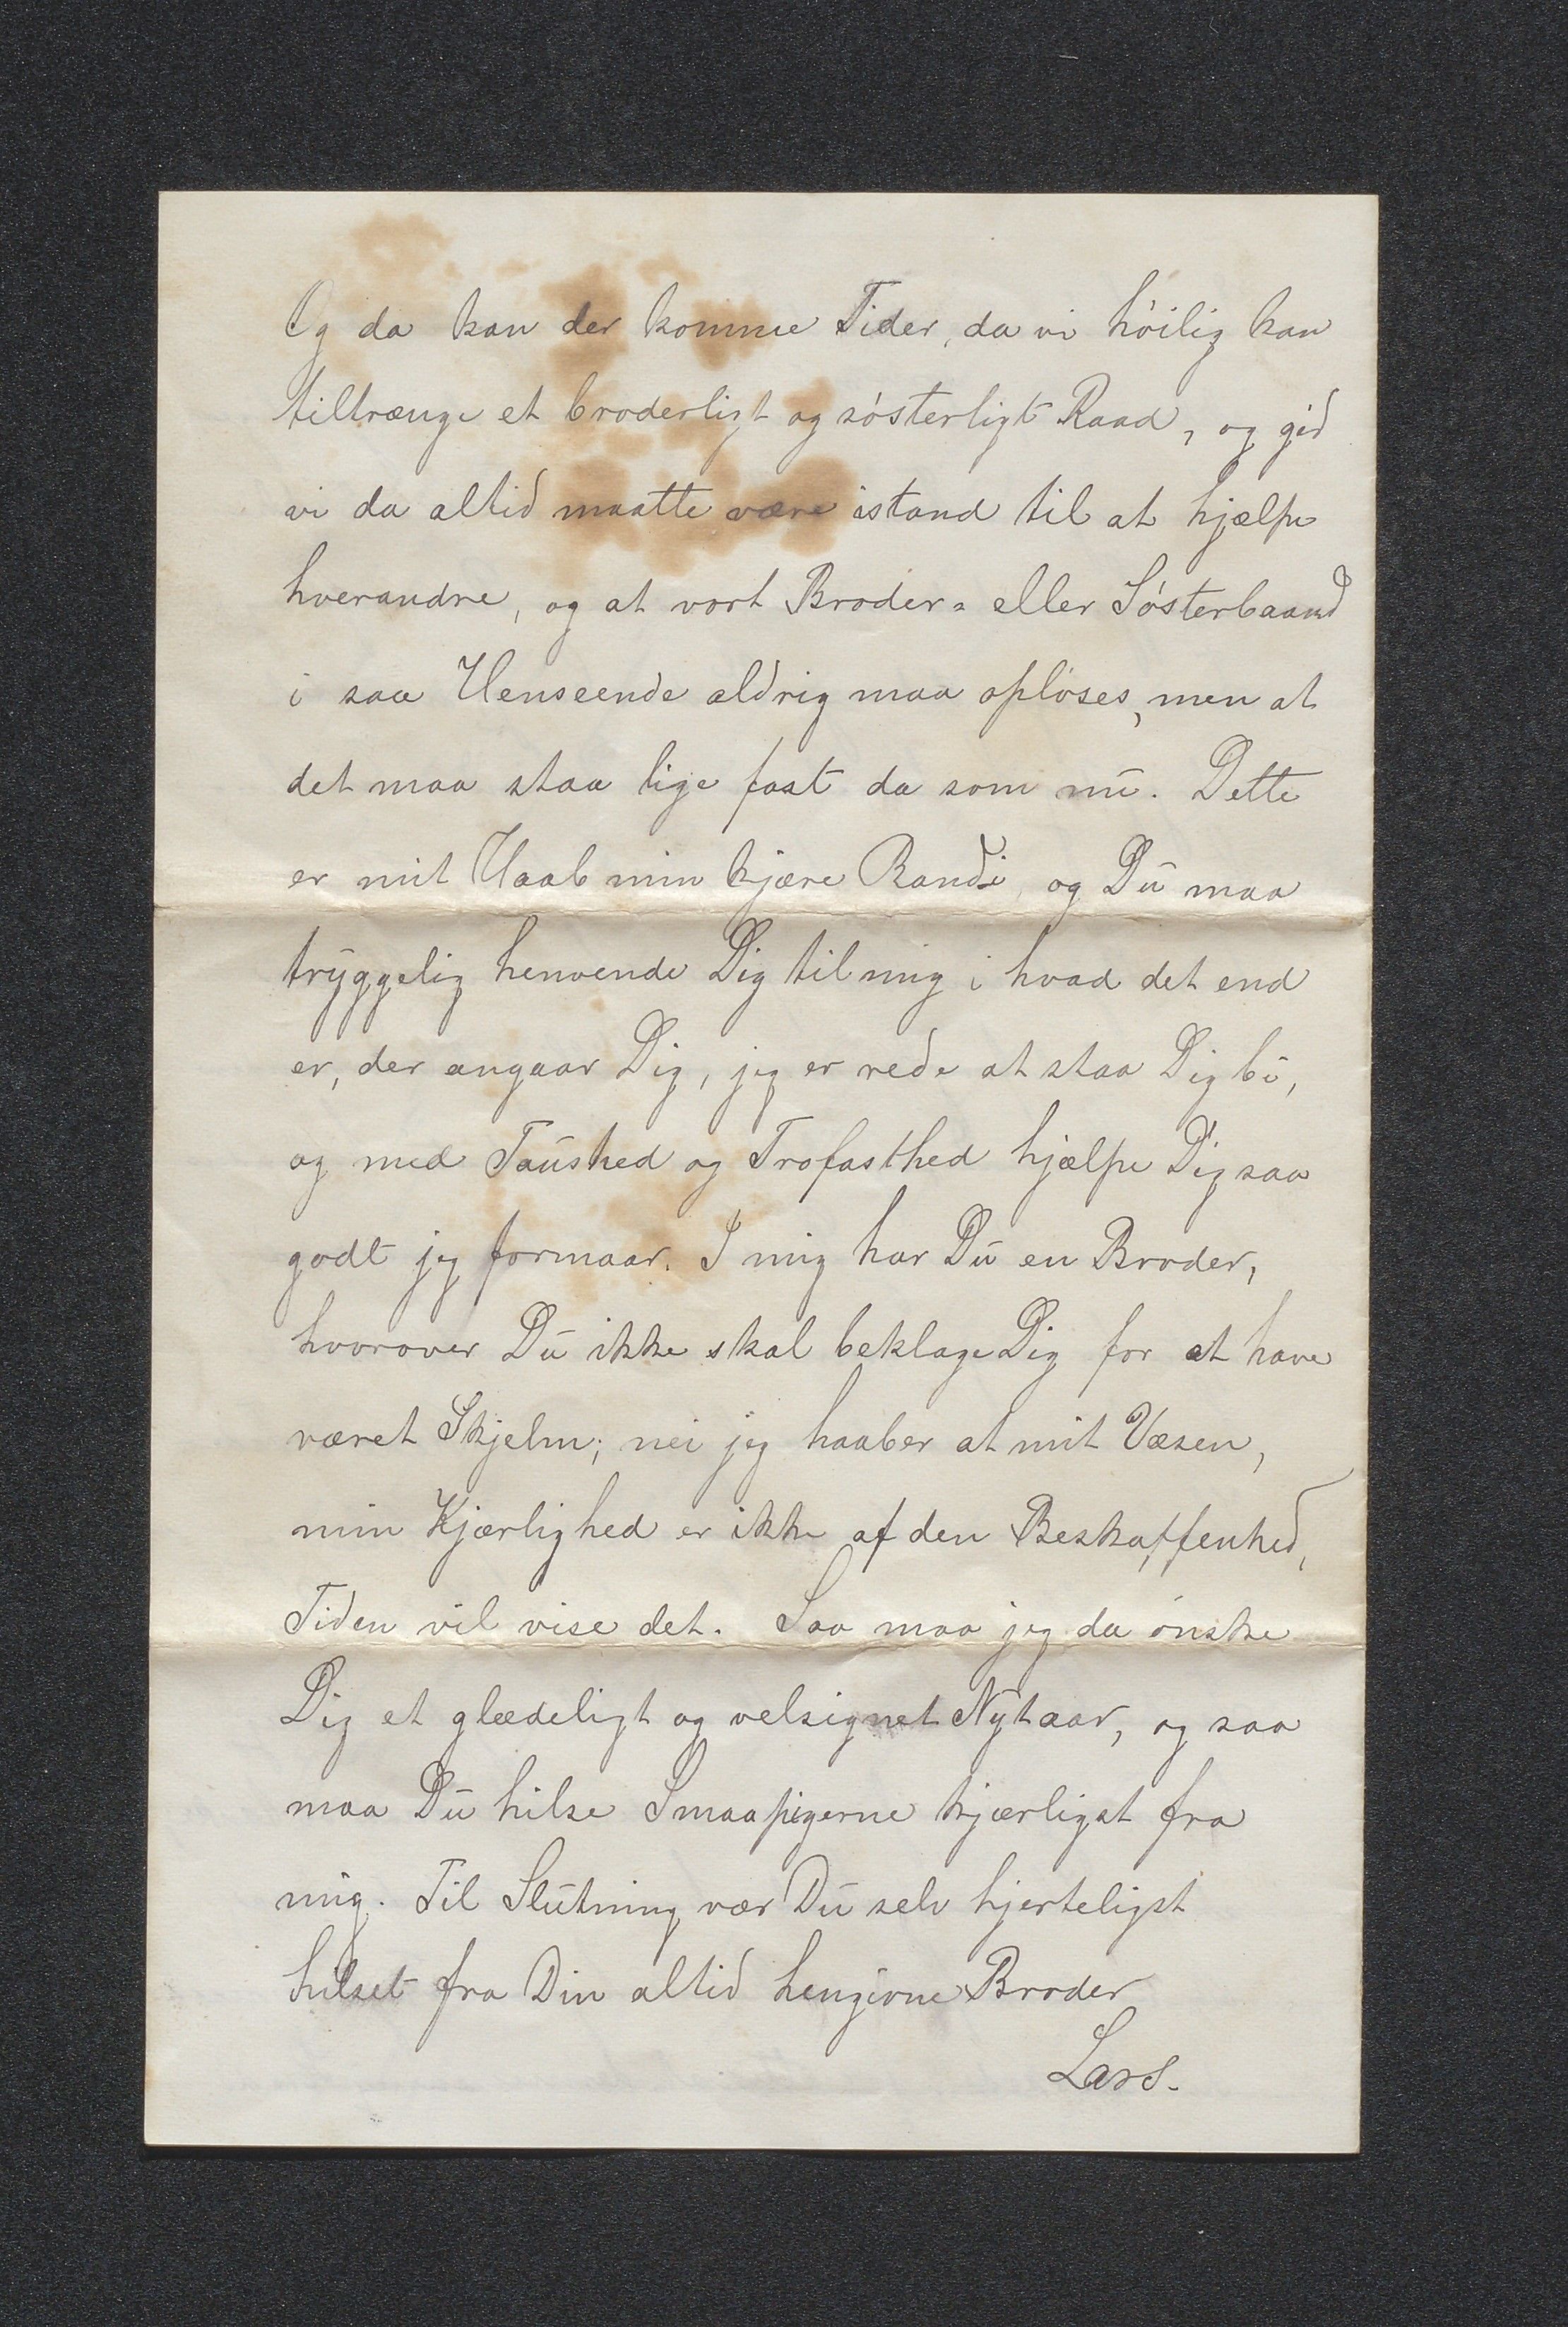 Og da kan der komme Tider, da vi höilig kan
tiltrænge et broderligt og sösterligt Raad, og gid
vi da altid maatte være istand til at hjælpe
hverandre, og at vort Broder- eller Sösterbaand
i saa Henseende aldrig maa oplöses, men at
det maa staa lige fast da som nu. Dette
er mit Haab min kjære Randi, og Du maa
tryggelig henvende Dig til mig i hvad det end
er, der angaar Dig, jeg er rede at staa Dig bi,
og med Taushed og Trofasthed hjælpe Dig saa
godt jeg formaar. I mig har Du en Broder,
hvorover Du ikke skal beklage Dig for at have
været Skjelm; nei jeg haaber at mit Væsen,
min Kjærlighed er ikke af den Beskaffenhed,
Tiden vil vise det. Saa maa jeg da önske
Dig et glædeligt og velsignet Nytaar, og saa
maa Du hilse Smaapigerne kjærligst fra
mig. Til Slutning vær Du selv hjerteligst
hilset fra Din altid hengivne Broder
Lars.